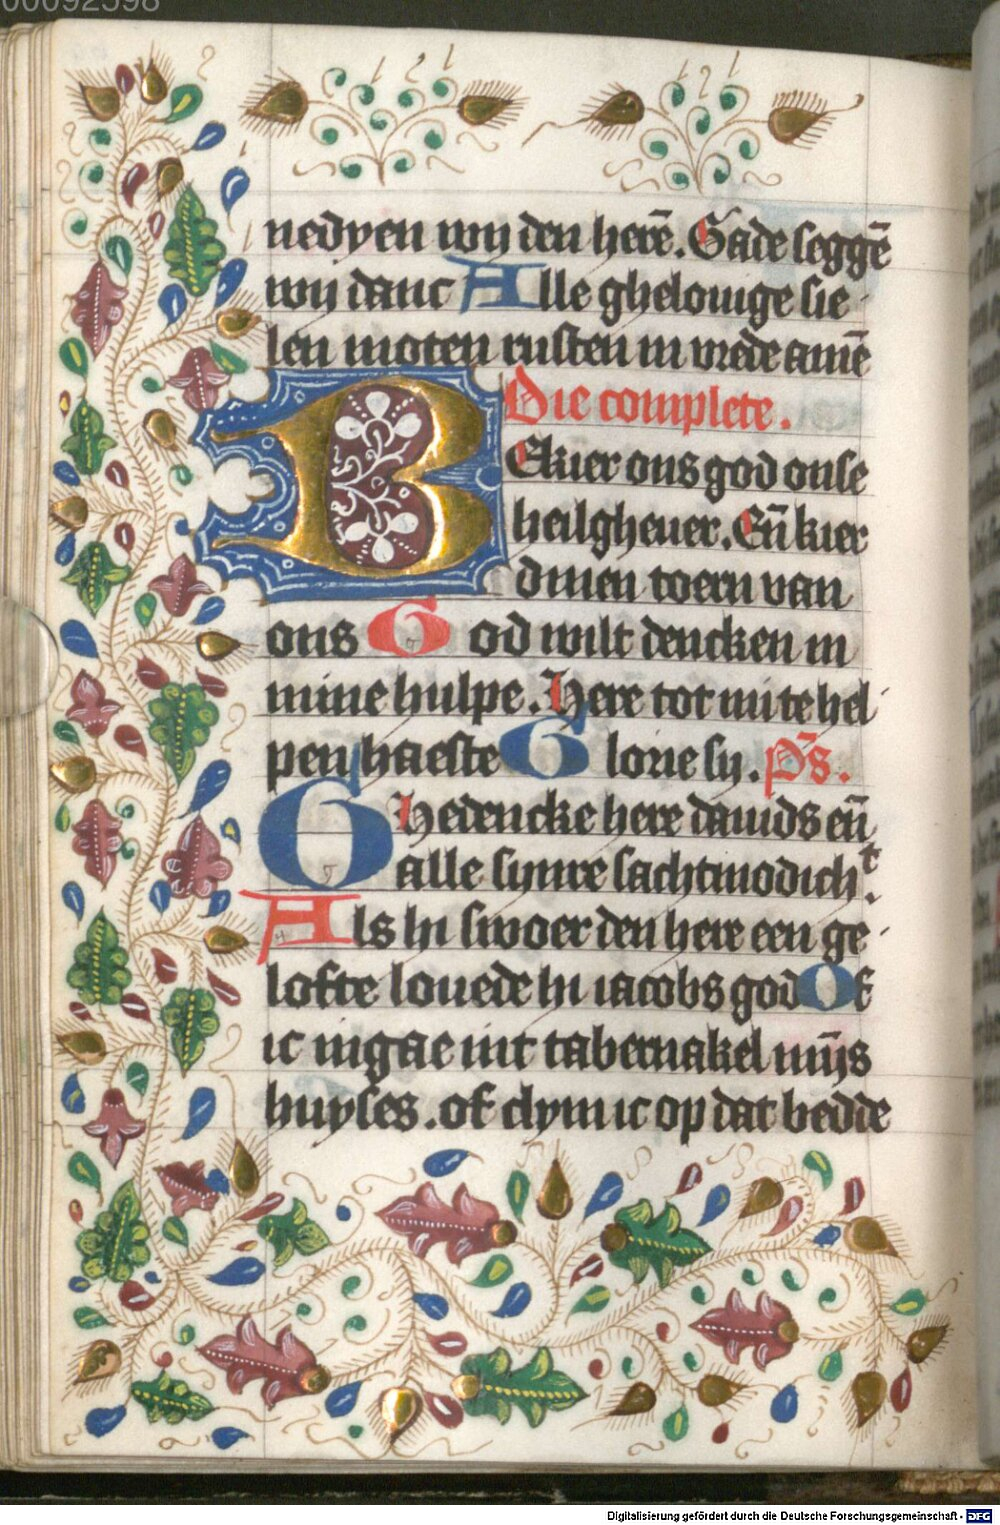 00092598
nedyen wy den herē. Gade seggē
wij danc Alle ghelouige sie
len moten rusten in vrede amē
Die complete.
BEkier ons god onse
heilgheuer. Eñ kier
dinen toern van
ons God wilt dencken in
mine hulpe. Here tot mi te hel
pen haeste Glorie sy. Ps.
GHedencke here dauids eñ
alle synre sachtmodicht.
Als hi swoer den here een ge
lofte louede hi iacobs god Of
ic inga e int tabernakel mijs
huyses. of clym ic op dat bedde
Digitalisierung gefördert durch die Deutsche Forschungsgemeinschaft - DFG